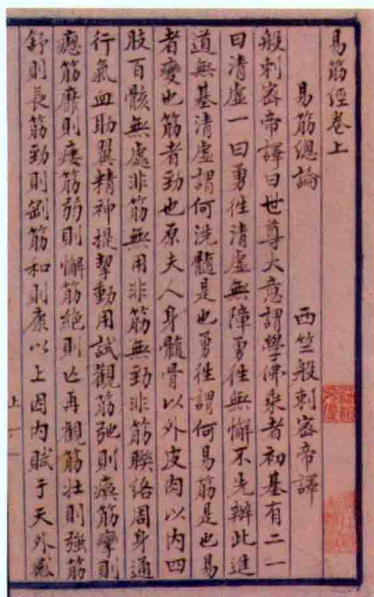 易筋經卷上
易筋總論
西竺般刺密帝譯
般刺密帝譯曰世尊大意謂學佛乘者初基有二一
曰清虛一曰勇徃清虛無障勇徃無懈不先辦此進
道無基清虛謂何洗髓是也勇徃謂何易筋是也易
者變也筋者勁也原夫人身髓骨以外皮肉以内四
肢百骸無處非筋無用非筋無勁非筋聯絡周身通
行氣血助翼精神提挈動用試觀筋弛則瘓筋攣則
瘛筋靡則痿筋弱則懈筋絶則亾再觀筋壯則強筋
舒則長筋勁則剛筋和則康以上因内賦于天外感
上